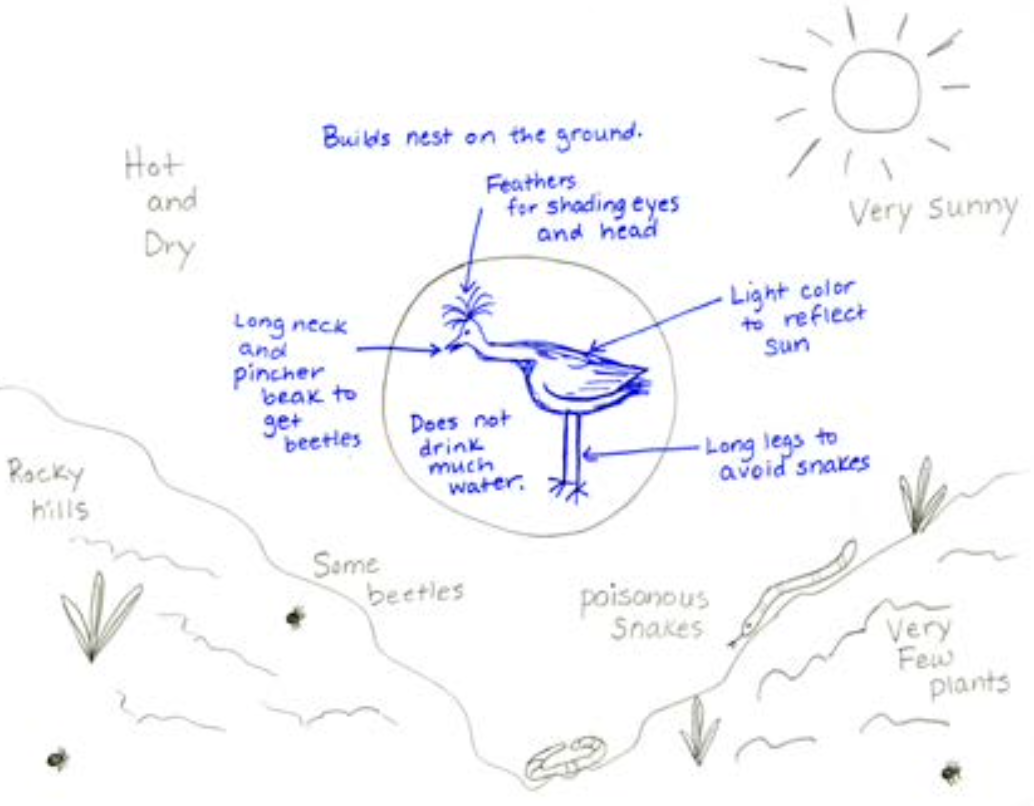 Builds nest on the ground.
Hot
and
Dry
Feathers
for shading eyes
and head
Very Sunny
Light color
to reflect
sun
Long neck
and
pincher
beak to
get
beetles
Does not
drink
much
water.
Long legs to
avoid snakes
Rocky
hills
Some
beetles
poisonous
Snakes
Very
Few
plants